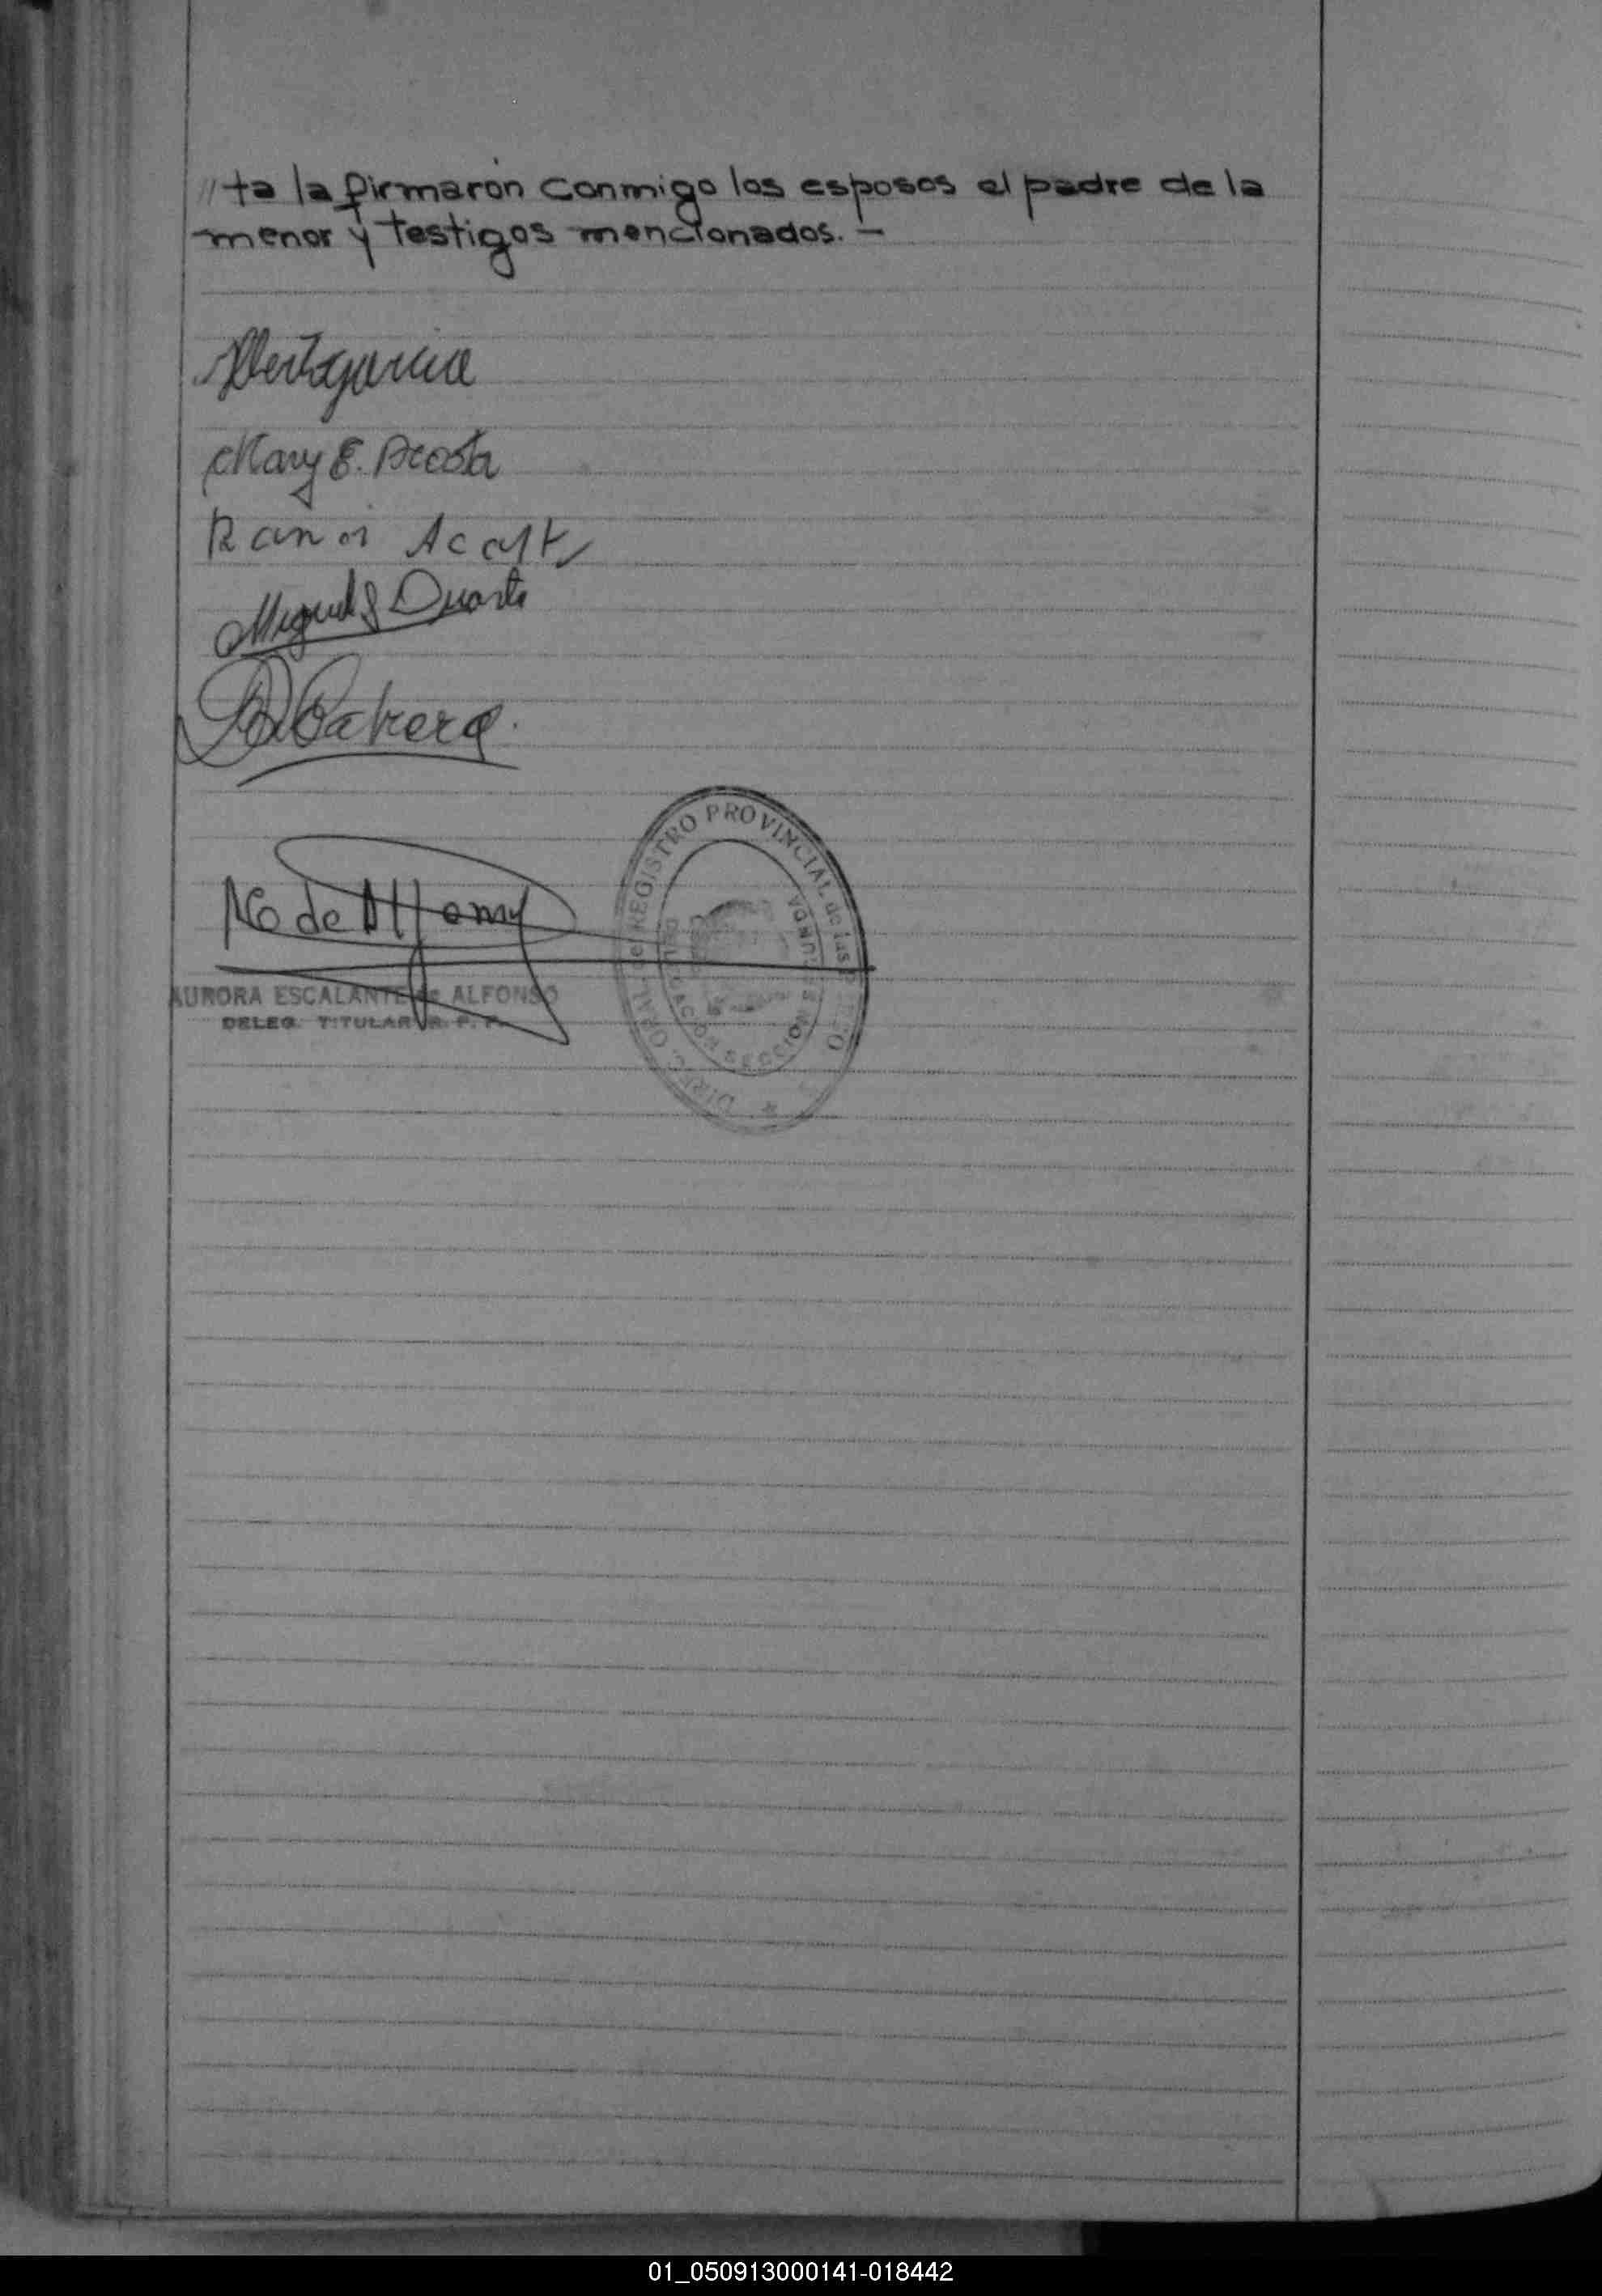 "ta la firmaron conmigo los esposos el padre de la
menor y testigos mencionados. —
Mary E. Acosta
Acosta
Miguel Duarte
Cabrera
de Alfonso
AURORA ESCALANTE de ALFONSO
DELEG. TITULAR R. P. P.
del REGISTRO PROVINCIAL de las
SECCION SEGUNDA
01_050913000141-018442